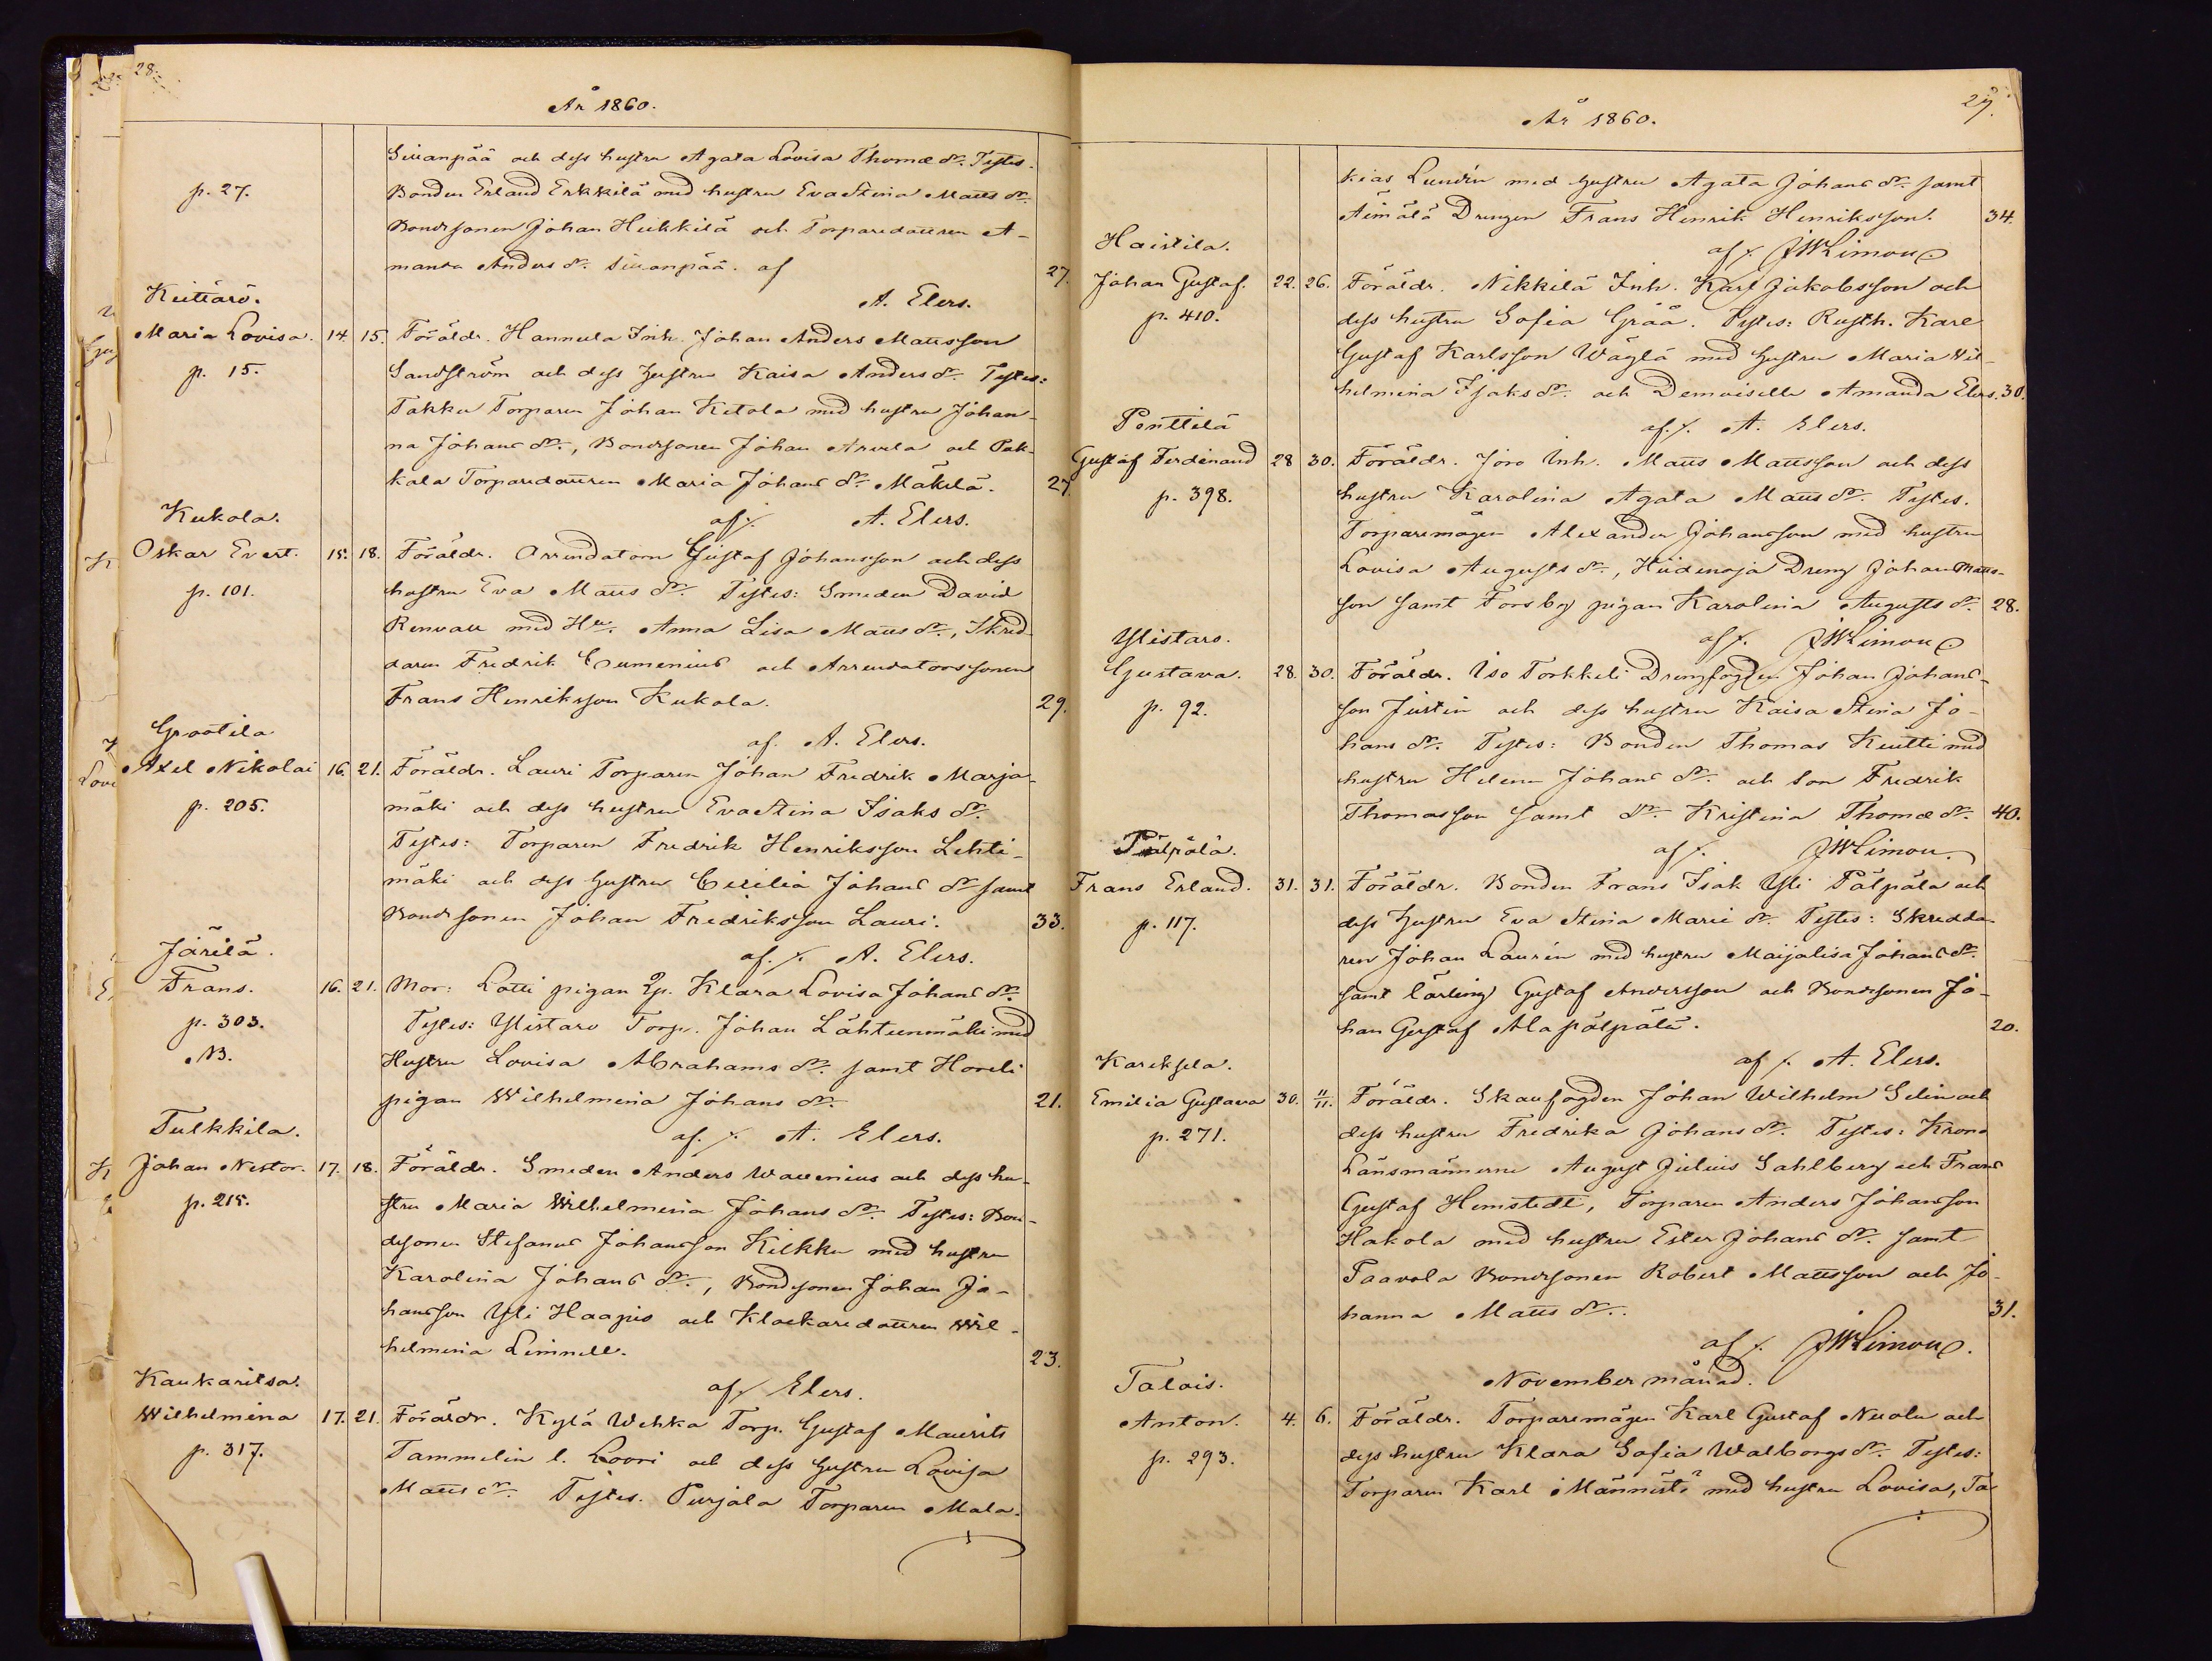 28.
År 1860.
Siuanpää och dess hustru Agata Lovisa Thomæ dr. Testes.
p. 27.
Bonden Erland Erkkilä med hustru Eva Stina Matts dr.
Bondsonen Johan Heikkilä och Torparedottren A-
manda Anders dr. Siuanpää. af 27.
Keittärö.
A. Elers.
Maria Lovisa. 14. 15. Föräldr. Hannula Inh. Johan Anders Mattsson
p. 15.
Sandström och dess hustru Kaisa Anders dr. Testes:
Takku Torparen Johan Ketola med hustru Johan-
na Johans dr., Bondsonen Johan Arvela och Pak-
kala Torparedottren Maria Johans dr. Mäkilä. 27.
Kukola.
af /. A. Elers.
Oskar Evert. 15. 18. Föräldr. Arrendatorn Gustaf Johansson och dess
p. 101.
hustru Eva Matts dr. Testes: Smeden David
Renvall med Hu. Anna Lisa Matts dr., Skred-
daren Fredrik Eumenius och Arrendatorssonen
Frans Henriksson Kukola. 29.
Grootila
af. A. Elers.
Axel Nikolai 16. 21. Föräldr. Lauri Torparen Johan Fredrik Marja-
p. 205.
mäki och dess hustru Eva Stina Isaks dr.
Testes: Torparen Fredrik Henriksson Lehti-
mäki och dess hustru Cecilia Johans dr samt
Bondsonen Johan Fredriksson Lauri. 33.
Järilä.
af. /. A. Elers.
Frans. 16. 21. Mor: Latti pigan Qp. Klara Lovisa Johans dr.
p. 303.
Testes: Ylistaro Torp. Johan Lähteenmäki med
NB.
Hustru Lovisa Abrahams dr. samt Horeli
pigan Wilhelmina Johans dr. 21.
Tulkkila.
af. /. A. Elers.
Johan Nestor. 17. 18. Föräldr. Smeden Anders Wallenius och dess hu-
p. 215.
stru Maria Wilhelmina Johans dr. Testes: Bon-
desonen Stefanus Johansson Kilkku med hustru
Karolina Johans dr., Bondsonen Johan Jo-
hansson Yli Haapio och Klockaredottren Wil-
helmina Limnell. 23.
Kaukaritsa.
af / Elers.
Wilhelmina 17. 21. Föräldr. Kylä Wehka Torp. Gustaf Maurits
p. 317.
Tammelin l. Loori och dess hustru Lovisa
Matts dr. Testes. Purjala Torparen Mala-
27.
År 1860.
kias Lundin med hustru Agata Johans dr. samt
Äimälä Drengen Frans Henrik Henriksson. 34.
Haistila.
af /. JWLimon
Johan Gustaf. 22. 26. Föräldr. Nikkilä Inh. Karl Jakobsson och
p. 410.
dess hustru Sofia Grää. Testes: Rusth. Karl
Gustaf Karlsson Wäglä med hustru Maria Wil-
helmina Isaks dr. och Demoiselle Amanda Elers. 30.
Penttilä
af. /. A. Elers.
Gustaf Ferdinand 28 30. Föräldr. Joro Inh. Matts Mattsson och dess
p. 398.
hustru Karolina Agata Matts dr. Testes.
Torparemågen Alexander Johansson med hustru
Lovisa Augusts dr., Hiidenoja Dreng Johan Matts-
son samt Forsby pigan Karolina Augusts dr. 28.
Ylistaro.
af /. JWLimon
Gustava. 28. 30. Föräldr. Iso Torkkeli Drengfogden Johan Johans-
p. 92.
son Justin och dess hustru Kaisa Stina Jo-
hans dr. Testes: Bonden Thomas Keutti med
hustru Helena Johans dr. och Son Fredrik
Thomasson samt dr. Kristina Thomæ dr. 40.
Pälpälä.
af /. JWLimon.
Frans Erland. 31. 31. Föräldr. Bonden Frans Isak Yli Pälpälä och
p. 117.
dess hustru Eva Stina Marie dr. Testes: Skredda-
ren Johan Laurén med hustru Maijalisa Johans dr.
samt lärling Gustaf Andersson och Bondsonen Jo-
han Gustaf Ala pälpälä. 20.
Kareksela.
af /. A. Elers.
Emilia Gustava 30. 11/11. Föräldr. Skaufogden Johan Wilhelm Selin och
p. 271.
dess hustru Fredrika Johans dr. Testes: Krono
Länsmännerne August Julius Sahlberg och Frans
Gustaf Hemstedt, Torparen Anders Johansson
Hakola med hustru Ester Johans dr. samt
Paavola Bondsonen Robert Mattsson och Jo-
hanna Matts dr. 31.
af /. JWLimon.
Talois.
November månad.
Anton. 4. 6. Föräldr. Torparemågen Karl Gustaf Nuolu och
p. 293.
dess hustru Klara Sofia Walborgs dr. Testes:
Torparen Karl Männistö med hustru Lovisa, Ta